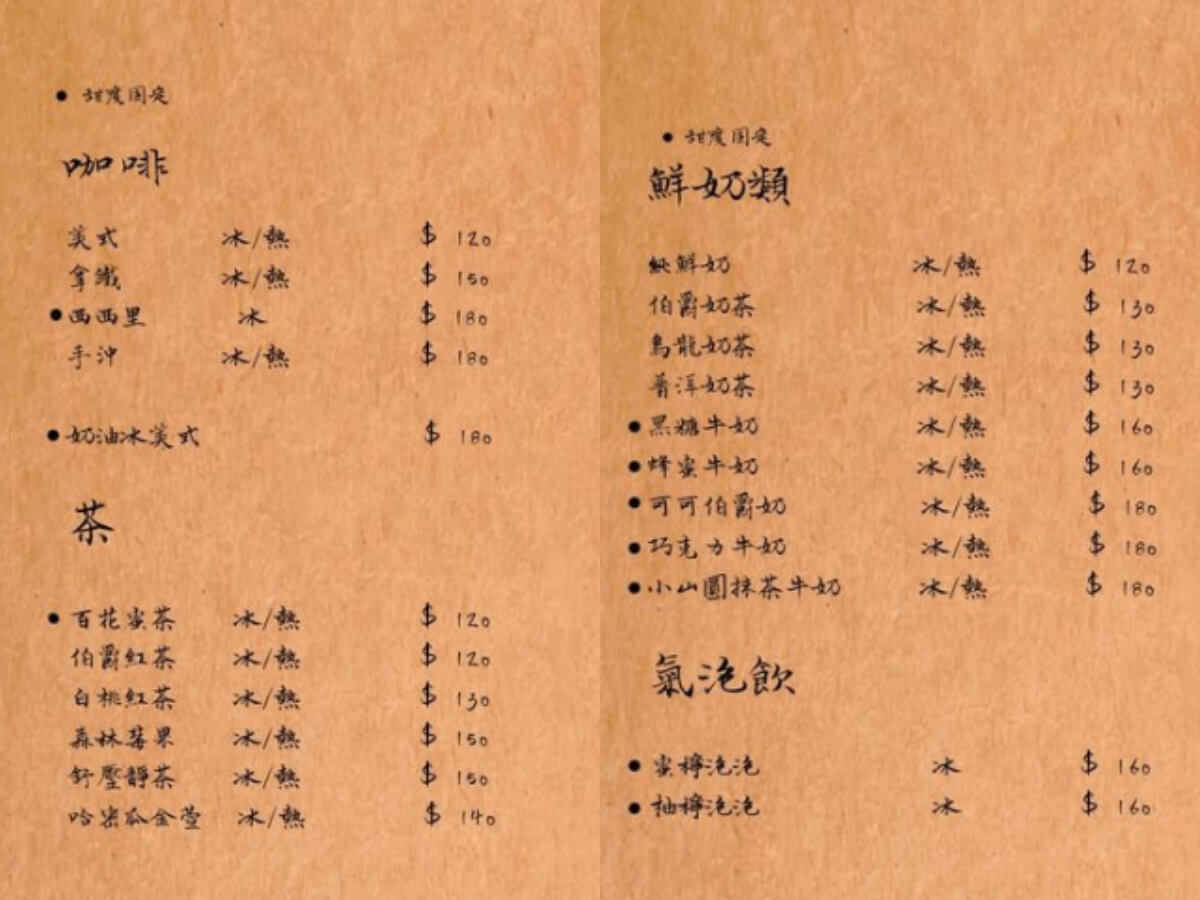 ● 甜度固定
咖啡
美式 冰/熱 $ 120
拿鐵 冰/熱 $ 150
● 西西里 冰 $ 180
手沖 冰/熱 $ 180
● 奶油冰美式 $ 180
茶
● 百花蜜茶 冰/熱 $ 120
伯爵紅茶 冰/熱 $ 120
白桃紅茶 冰/熱 $ 130
森林莓果 冰/熱 $ 150
舒壓靜茶 冰/熱 $ 150
哈密瓜金萱 冰/熱 $ 140
● 甜度固定
鮮奶類
純鮮奶 冰/熱 $ 120
伯爵奶茶 冰/熱 $ 130
烏龍奶茶 冰/熱 $ 130
普洱奶茶 冰/熱 $ 130
● 黑糖牛奶 冰/熱 $ 160
● 蜂蜜牛奶 冰/熱 $ 160
● 可可伯爵奶 冰/熱 $ 180
● 巧克力牛奶 冰/熱 $ 180
● 小山圓抹茶牛奶 冰/熱 $ 180
氣泡飲
● 蜜檸泡泡 冰 $ 160
● 柚檸泡泡 冰 $ 160